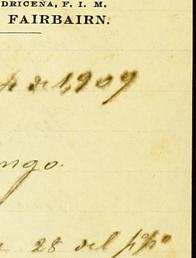 DRICEÑA, F. I. M.
FAIRBAIRN.
de 1,909
ngo.
28 del ppo